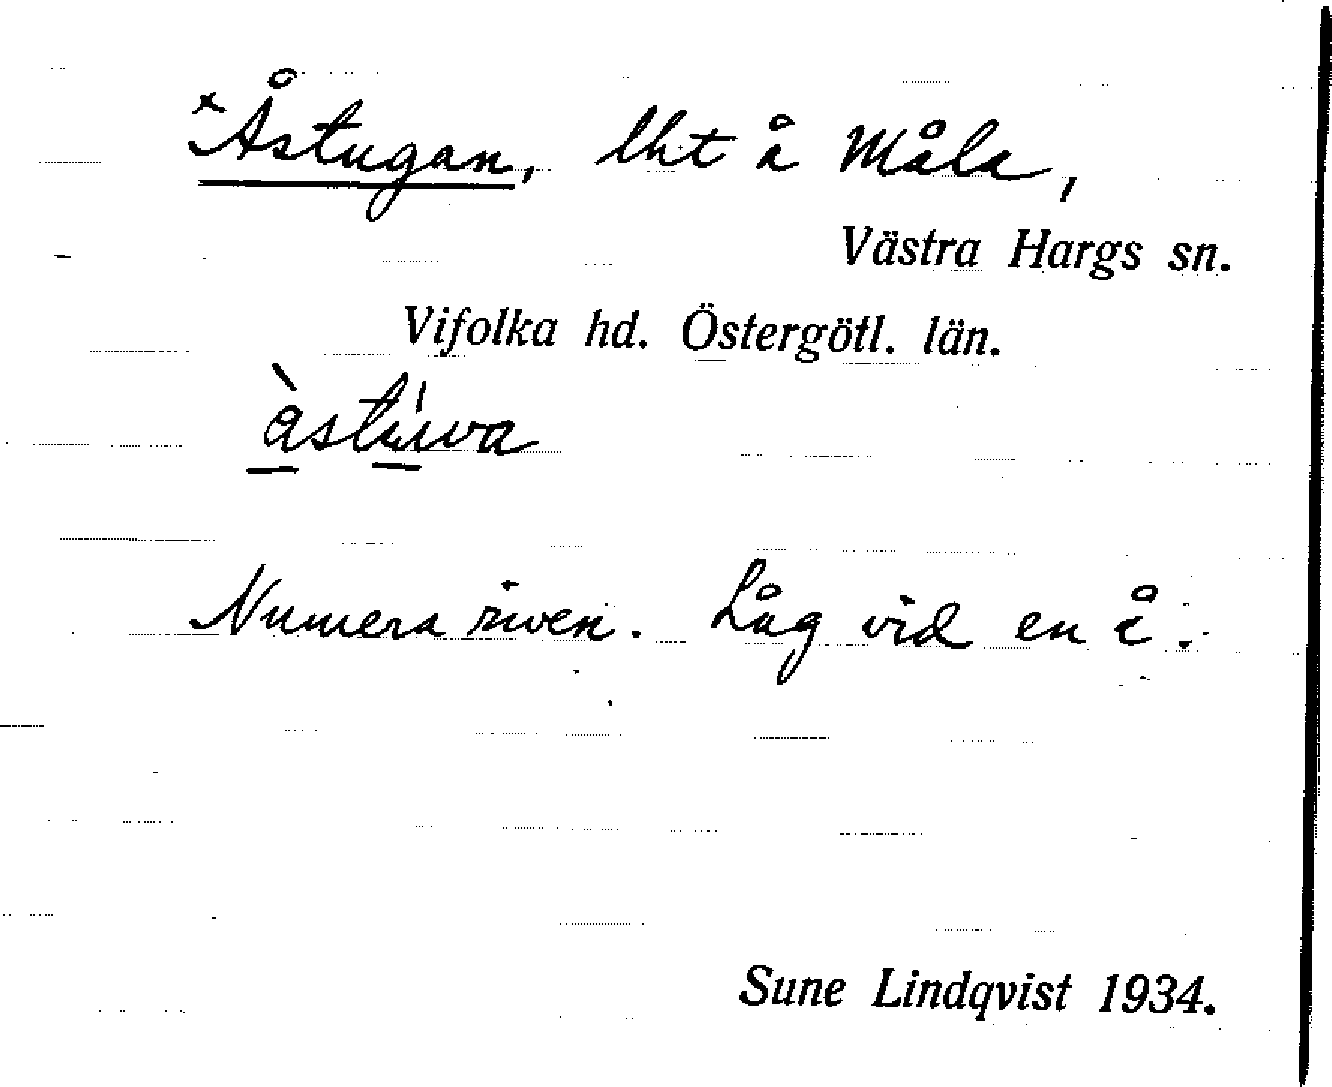 *Åstugan, lht å Måla,
Västra Hargs sn.
Vifolka hd. Östergötl. län.
Numera riven. Låg vid en å.
Sune Lindqvist 1934.